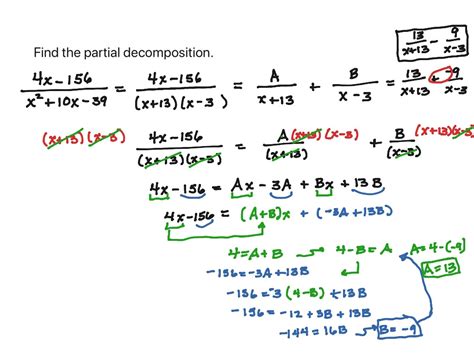 13/(x+13) - 9/(x-3)
Find the partial decomposition.
(4x-156)/(x²+10x-39) = (4x-156)/((x+13)(x-3)) = A/(x+13) + B/(x-3) = 13/(x+13) + -9/(x-3)
(x+13)(x-3) (4x-156)/((x+13)(x-3)) = A(x+13)(x-3)/(x+13) + B(x+13)(x-3)/(x-3)
4x-156 = Ax - 3A + Bx + 13B
4x-156 = (A+B)x + (-3A+13B)
4 = A+B → 4-B = A A = 4-(-9)
-156 = -3A+13B A = 13
-156 = -3(4-B) + 13B
-156 = -12 + 3B + 13B
-144 = 16B → B = -9